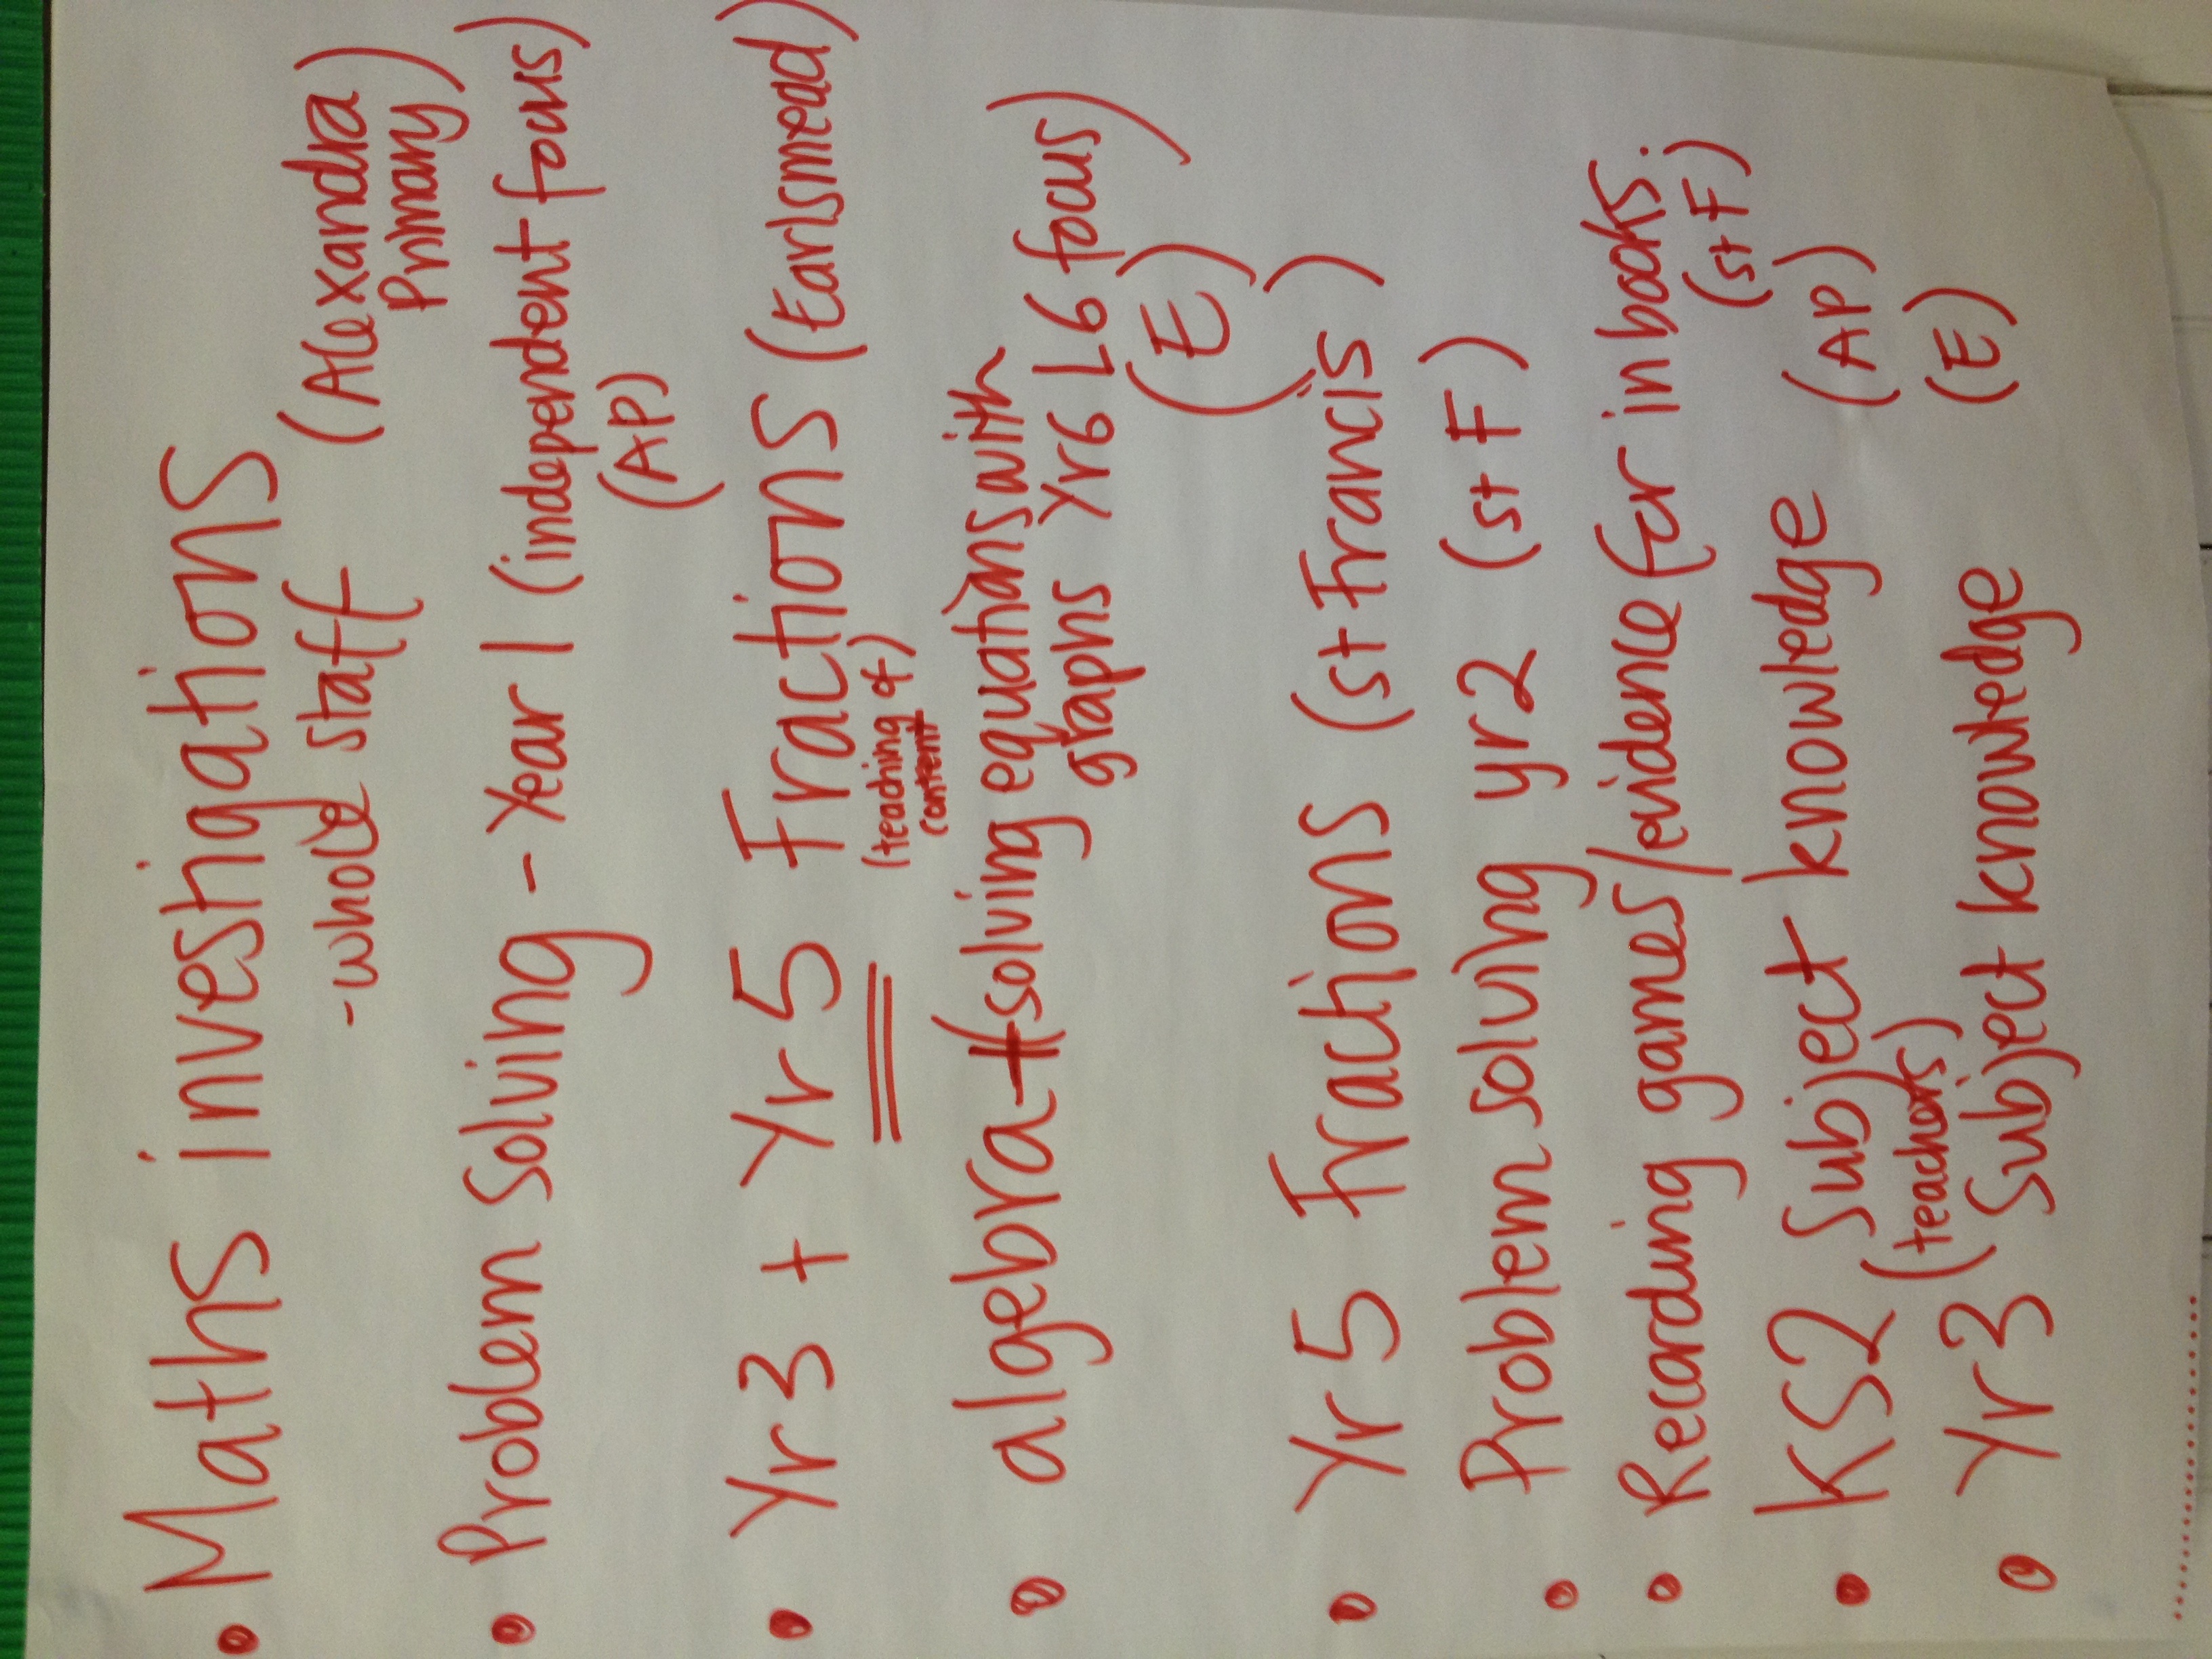 • Maths investigations
- whole staff (Alexandra
Primary)
• Problem solving - Year 1 (independent focus)
(AP)
• Yr3 + Yr5 Fractions (Earlsmead)
(teaching of)
content
• algebra - (solving equations with
graphs Yr6 L6 focus)
(E)
• Yr5 Fractions (St Francis)
• Problem solving yr2 (St F)
• Recording games/evidence for in books.
(St F)
• KS2 Subject knowledge (AP)
(teachers)
• Yr3 Subject knowledge (E)